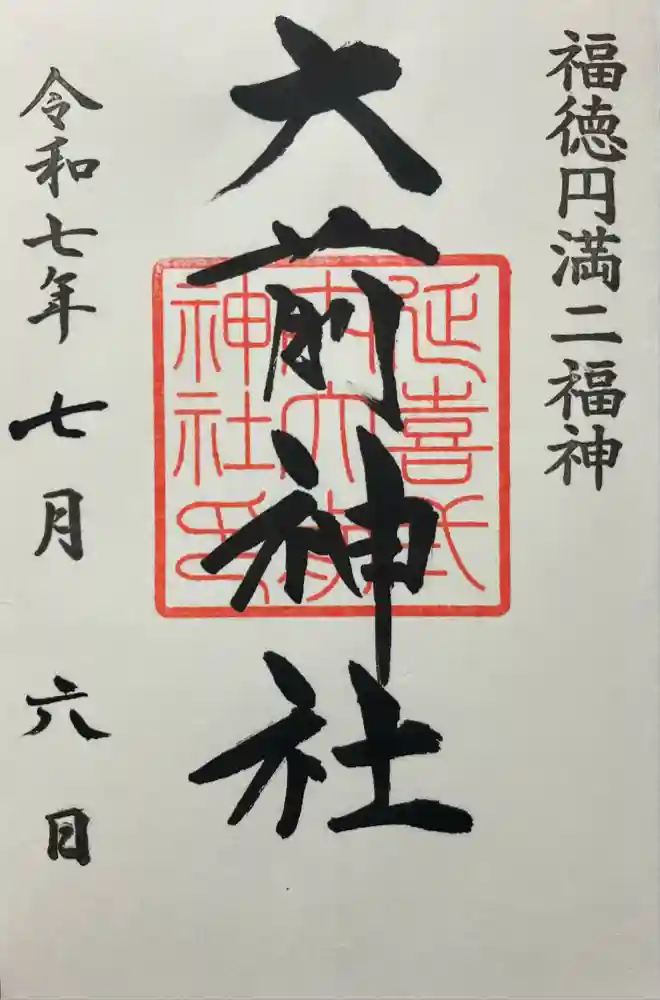 福徳円満二福神
大前神社
延喜式
内大前
神社印
令和七年 七月 六日